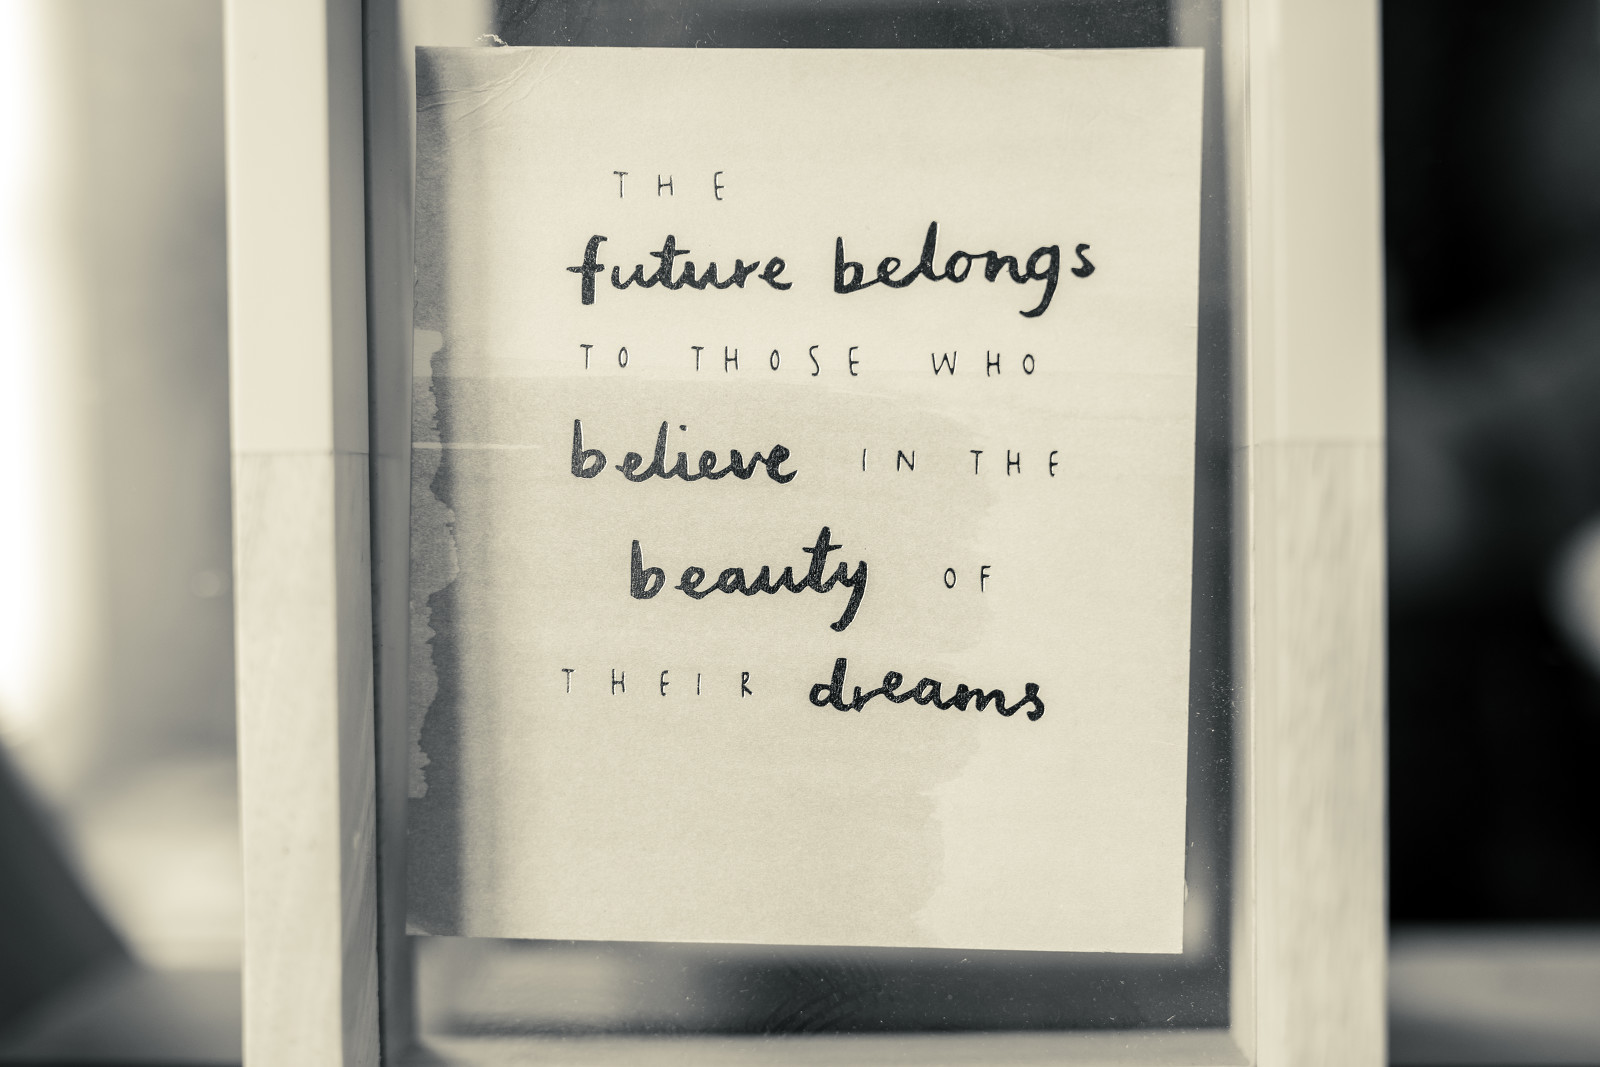 THE
future belongs
TO THOSE WHO
believe IN THE
beauty OF
THEIR dreams